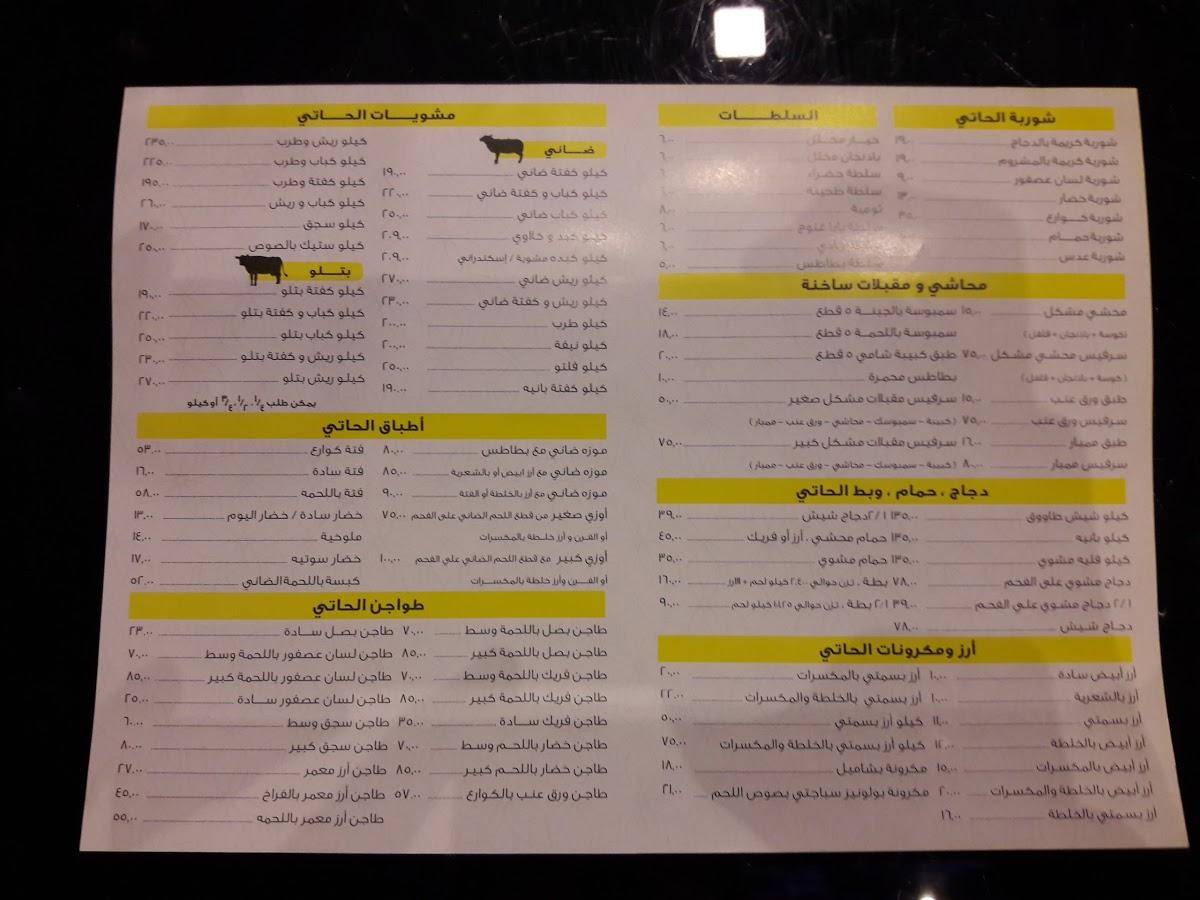 شوربة الحاتي
شوربة كريمة بالدجاج ١٩,٠٠
شوربة كريمة بالمشروم ١٩,٠٠
شوربة لسان عصفور ٩,٠٠
شوربة خضار
شوربة كـوارع ٣٥,٠٠
شوربة حمـام
شوربة عدس
السلطــات
خيـار مخـلل ٦,٠٠
باذنجان مخلل ٦,٠٠
سلطة خضراء ٦
سلطة طحينة ٦,٠٠
تومية ٨,٠٠
بابا غنوج ٦,٠٠
٦,٠٠
سلطة بطاطس ٥,٠٠
محاشي و مقبلات ساخنة
محشي مشكل ١٥,٠٠
(كوسة + باذنجان + فلفل)
سرفيس محشي مشكل ٧٥,٠٠
(كوسة + باذنجان + فلفل)
طبق ورق عنب ١٥,٠٠
سرفيس ورق عنب ٧٥,٠٠
طبق ممبار ١٦,٠٠
سرفيس ممبار ٨٠,٠٠
سمبوسة بالجبنـة ٥ قطع ١٤,٠٠
سمبوسة باللحمة ٥ قطع ١٨,٠٠
طبق كبيبة شامي ٥ قطع ٢٠,٠٠
بطاطس محمرة ١٠,٠٠
سرفيس مقبلات مشكل صغير ٥٠,٠٠
(كبيبة - سمبوسك - محاشي - ورق عنب - ممبار)
سرفيس مقبلات مشكل كبير ٧٥,٠٠
(كبيبة - سمبوسك - محاشي - ورق عنب - ممبار)
دجاج ، حمام ، وبط الحاتي
كيلو شيش طاووق ١٣٥,٠٠
كيلو بانيه ١٣٥,٠٠
كيلو فليه مشوي ١٣٥,٠٠
دجاج مشوي على الفحم ٧٨,٠٠
١/٢ دجاج مشوي على الفحم ٣٩,٠٠
دجاج شيش ٧٨,٠٠
١/٢ دجاج شيش ٣٩,٠٠
حمام محشي ، أرز أو فريك ٤٥,٠٠
حمام مشوي ٣٥,٠٠
بطة ، تزن حوالي ٢,٤٠٠ كيلو لحم + الارز ١٦٠,٠٠
١/٢ بطة ، تزن حوالي كيلو لحم ٩٠,٠٠
أرز ومكرونات الحاتي
أرز أبيض سادة ١٠,٠٠
أرز بالشعرية ١٠,٠٠
أرز بسمتي ١١,٠٠
أرز أبيض بالخلطة ١٢,٠٠
أرز أبيض بالمكسرات ١٥,٠٠
أرز أبيض بالخلطة والمكسرات ٢٠,٠٠
أرز بسمتي بالخلطة ١٦,٠٠
أرز بسمتي بالمكسرات ٢٠,٠٠
أرز بسمتي بالخلطة والمكسرات ٢٢,٠٠
كيلو أرز بسمتي ٥٠,٠٠
كيلو أرز بسمتي بالخلطة والمكسرات ٧٥,٠٠
مكرونة بشاميل ١٨,٠٠
مكرونة بولونيز سباجتي بصوص اللحم ٢١,٠٠
مشويــات الحــاتي
ضــاني
كيلو كفتة ضاني ١٩٠,٠٠
كيلو كباب و كفتة ضاني ٢٢٠,٠٠
كيلو كباب ضاني ٢٥٠,٠٠
كيلو كبد و كلاوي ٢٠٩,٠٠
كيلو كبده مشوية / إسكندراني ٢٠٩,٠٠
كيلو ريش ضاني ٢٧٠,٠٠
كيلو ريش و كفتة ضاني ٢٣٠,٠٠
كيلو طرب ٢٠٠,٠٠
كيلو نيفة ٢٠٠,٠٠
كيلو فلتو ٢٥٠,٠٠
كيلو كفتة بانيه ١٩٠,٠٠
كيلو ريش وطرب ٢٣٥,٠٠
كيلو كباب وطرب ٢٢٥,٠٠
كيلو كفتة وطرب ١٩٥,٠٠
كيلو كباب و ريش ٢٦٠,٠٠
كيلو سجق ١٧٠,٠٠
كيلو ستيك بالصوص ٢٥٠,٠٠
بتــلو
كيلو كفتة بتلو ١٩٠,٠٠
كيلو كباب و كفتة بتلو ٢٢٠,٠٠
كيلو كباب بتلو ٢٥٠,٠٠
كيلو ريش و كفتة بتلو ٢٣٠,٠٠
كيلو ريش بتلو ٢٧٠,٠٠
يمكن طلب ١/٤ ، ١/٢ ، ٣/٤ أو كيلو
أطباق الحاتي
موزه ضاني مع بطاطس ٨٠,٠٠
موزه ضاني مع أرز ابيض أو بالشعرية ٨٥,٠٠
موزه ضاني مع أرز بالخلطة أو الفتة ٩٠,٠٠
أوزي صغير من قطع اللحم الضاني على الفحم ٧٥,٠٠
أو الفـرن و أرز خـلـطة بالمكسرات
أوزي كبير مع قطع اللحم الضاني على الفحم ١٠٠,٠٠
أو الفـــرن وأرز خلطة بالمكســرات
فتة كوارع ٥٣,٠٠
فتة سادة ١٦,٠٠
فتة باللحمه ٥٨,٠٠
خضار سادة / خضار اليوم ١٣,٠٠
ملوخية ١٤,٠٠
خضار سوتيه ١٧,٠٠
كبسة باللحمة الضاني ٥٢,٠٠
طواجن الحاتي
طاجن بصل باللحمة وسط ٧٠,٠٠
طاجن بصل باللحمة كبير ٨٥,٠٠
طاجن فريك باللحمة وسط ٧٠,٠٠
طاجن فريك باللحمة كبير ٨٥,٠٠
طاجن فريك ســادة ٣٥,٠٠
طاجن خضار باللحـم وسط ٧٠,٠٠
طاجن خضار باللحـم كبير ٨٥,٠٠
طاجن ورق عنب بالكوارع ٥٧,٠٠
طاجن بصل ســادة ٢٣,٠٠
طاجن لسان عصفور باللحمة وسط ٧٠,٠٠
طاجن لسان عصفور باللحمة كبير ٨٥,٠٠
طاجن لسان عصفور ســادة ٢٥,٠٠
طاجن سجق وسط ٦٠,٠٠
طاجن سجق كبير ٨٠,٠٠
طاجن أرز معمر ٢٧,٠٠
طاجن أرز معمر بالفراخ ٤٥,٠٠
طاجن أرز معمر باللحمه ٥٥,٠٠